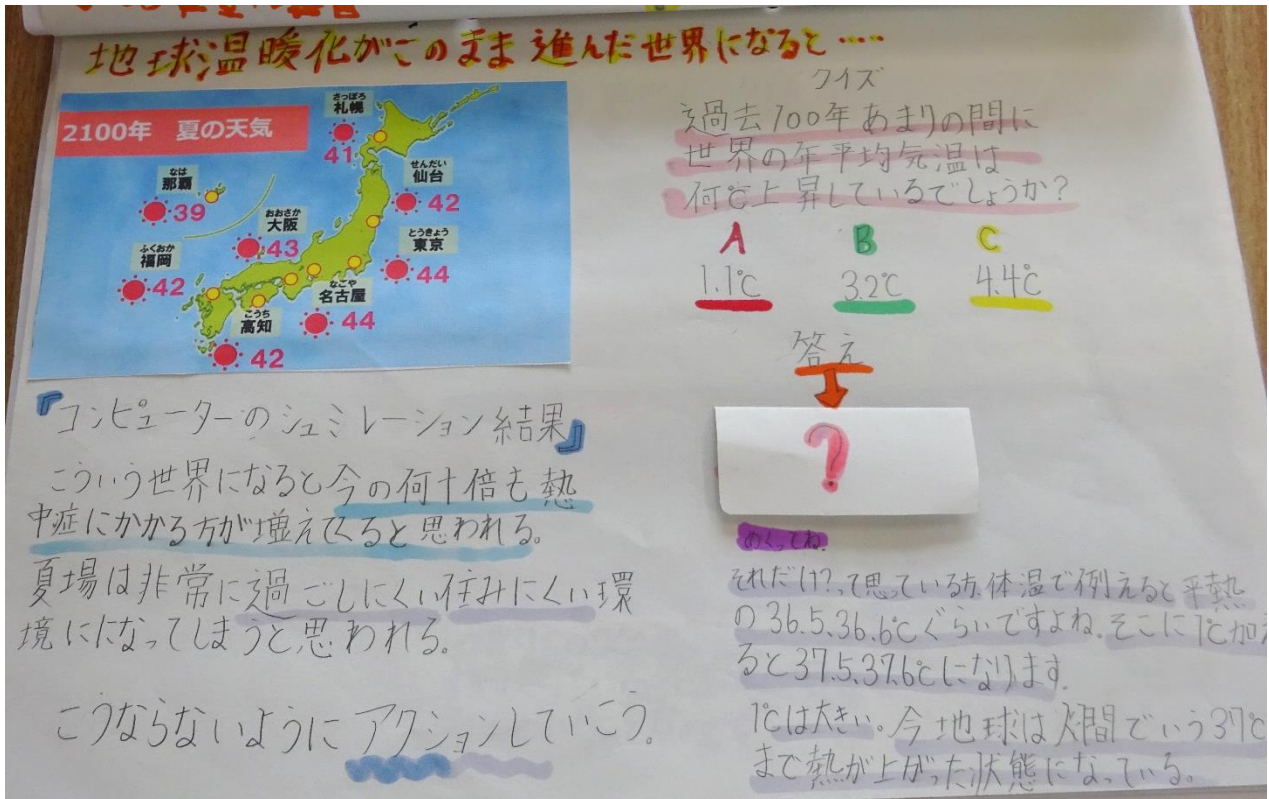 地球温暖化がこのまま進んだ世界になると‥‥
2100年 夏の天気
さっぽろ
札幌
41
せんだい
仙台
42
なは
那覇
39
おおさか
大阪
43
とうきょう
東京
44
ふくおか
福岡
42
なごや
名古屋
44
こうち
高知
42
『コンピューターのシュミレーション結果』
こういう世界になると今の何十倍も熱
中症にかかる方が増えてくると思われる。
夏場は非常に過ごしにくい住みにくい環
境にになってしまうと思われる。
こうならないようにアクションしていこう。
クイズ
過去100年あまりの間に
世界の年平均気温は
何℃上昇しているでしょうか?
A
B
C
1.1℃
3.2℃
4.4℃
答え
?
めくってね。
それだけ?って思っている方、体温で例えると平熱
の36.5、36.6℃ぐらいですよね。そこに1℃加え
ると37.5、37.6℃になります。
1℃は大きい。今地球は人間でいう37℃
まで熱が上がった状態になっている。